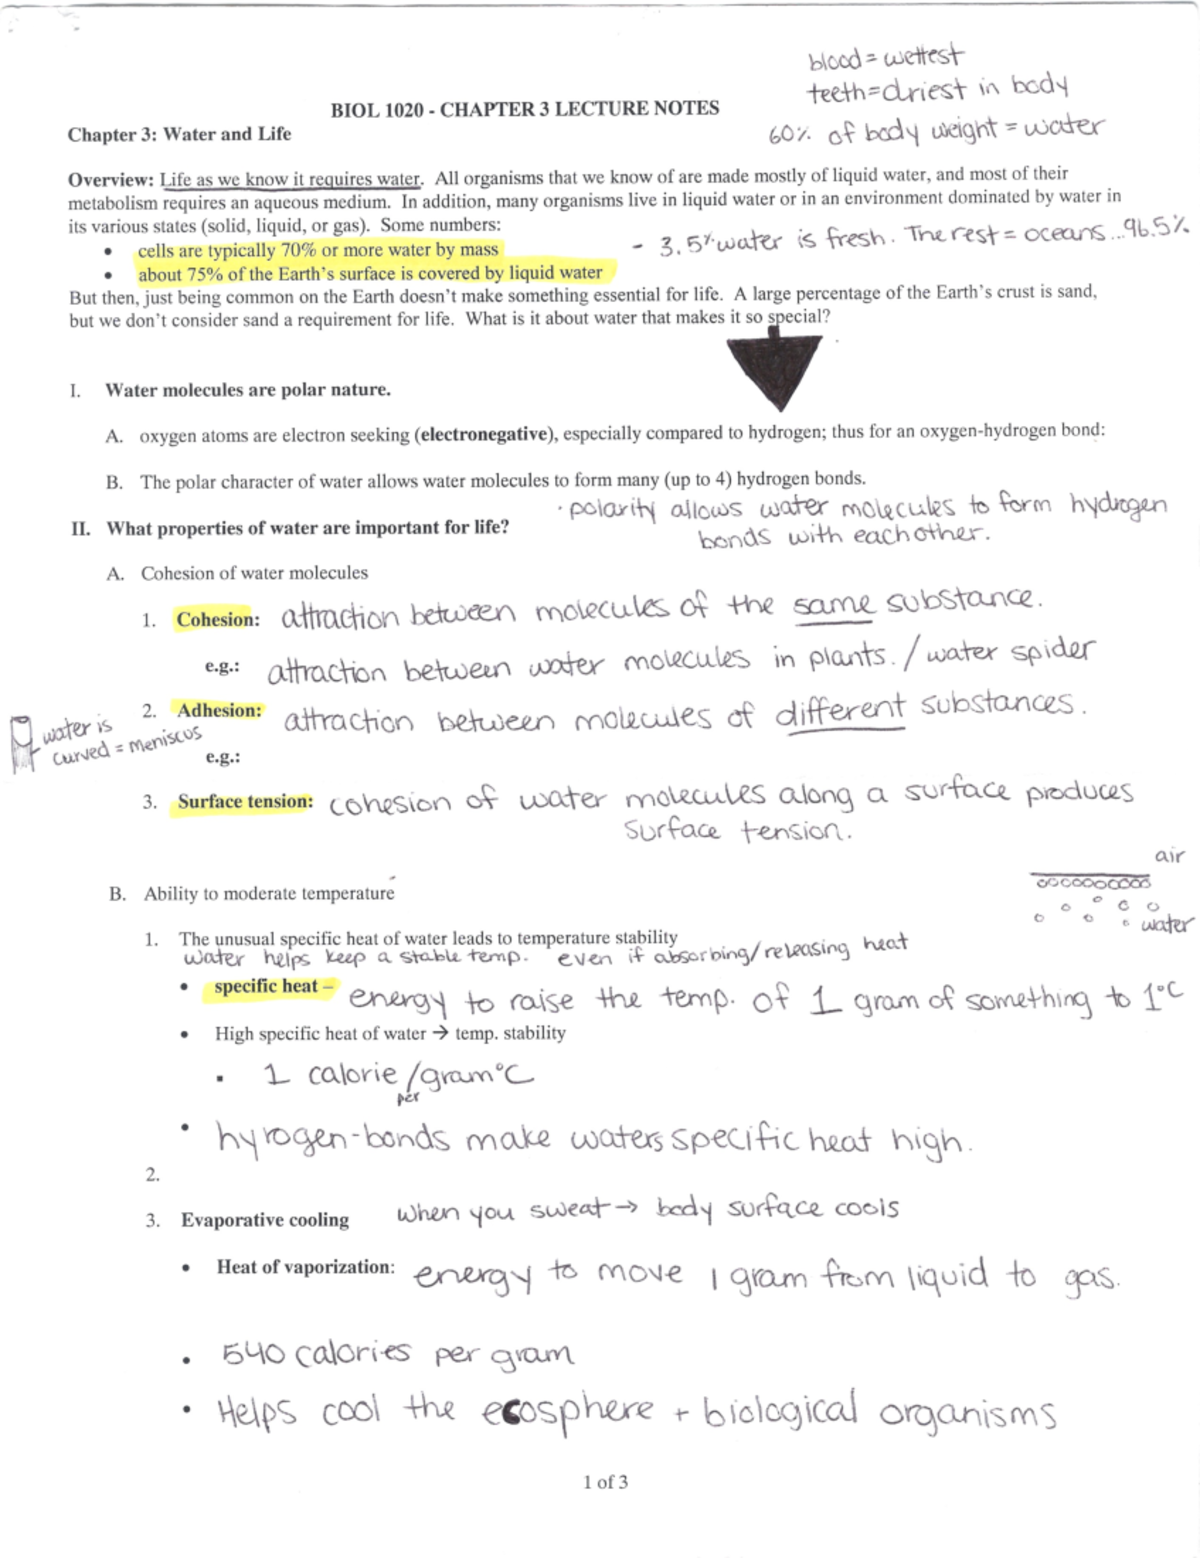 blood = wettest
teeth = driest in body
BIOL 1020 - CHAPTER 3 LECTURE NOTES
60% of body weight = water
Chapter 3: Water and Life
Overview: Life as we know it requires water. All organisms that we know of are made mostly of liquid water, and most of their
metabolism requires an aqueous medium. In addition, many organisms live in liquid water or in an environment dominated by water in
its various states (solid, liquid, or gas). Some numbers:
• cells are typically 70% or more water by mass
- 3.5% water is fresh. The rest = oceans...96.5%
• about 75% of the Earth's surface is covered by liquid water
But then, just being common on the Earth doesn't make something essential for life. A large percentage of the Earth's crust is sand,
but we don't consider sand a requirement for life. What is it about water that makes it so special?
I. Water molecules are polar nature.
A. oxygen atoms are electron seeking (electronegative), especially compared to hydrogen; thus for an oxygen-hydrogen bond:
B. The polar character of water allows water molecules to form many (up to 4) hydrogen bonds.
· polarity allows water molecules to form hydrogen
bonds with each other.
II. What properties of water are important for life?
A. Cohesion of water molecules
1. Cohesion: attraction between molecules of the same substance.
e.g.: attraction between water molecules in plants. / water spider
2. Adhesion: attraction between molecules of different substances.
water is
curved = meniscus
e.g.:
3. Surface tension: cohesion of water molecules along a surface produces
surface tension.
air
water
B. Ability to moderate temperature
1. The unusual specific heat of water leads to temperature stability
water helps keep a stable temp. even if absorbing/releasing heat
• specific heat – energy to raise the temp. of 1 gram of something to 1°C
• High specific heat of water → temp. stability
▪ 1 calorie/gram°C
per
• hyrogen-bonds make waters specific heat high.
2.
3. Evaporative cooling when you sweat → body surface cools
• Heat of vaporization: energy to move 1 gram from liquid to gas.
• 540 calories per gram
• Helps cool the ecosphere + biological organisms
1 of 3